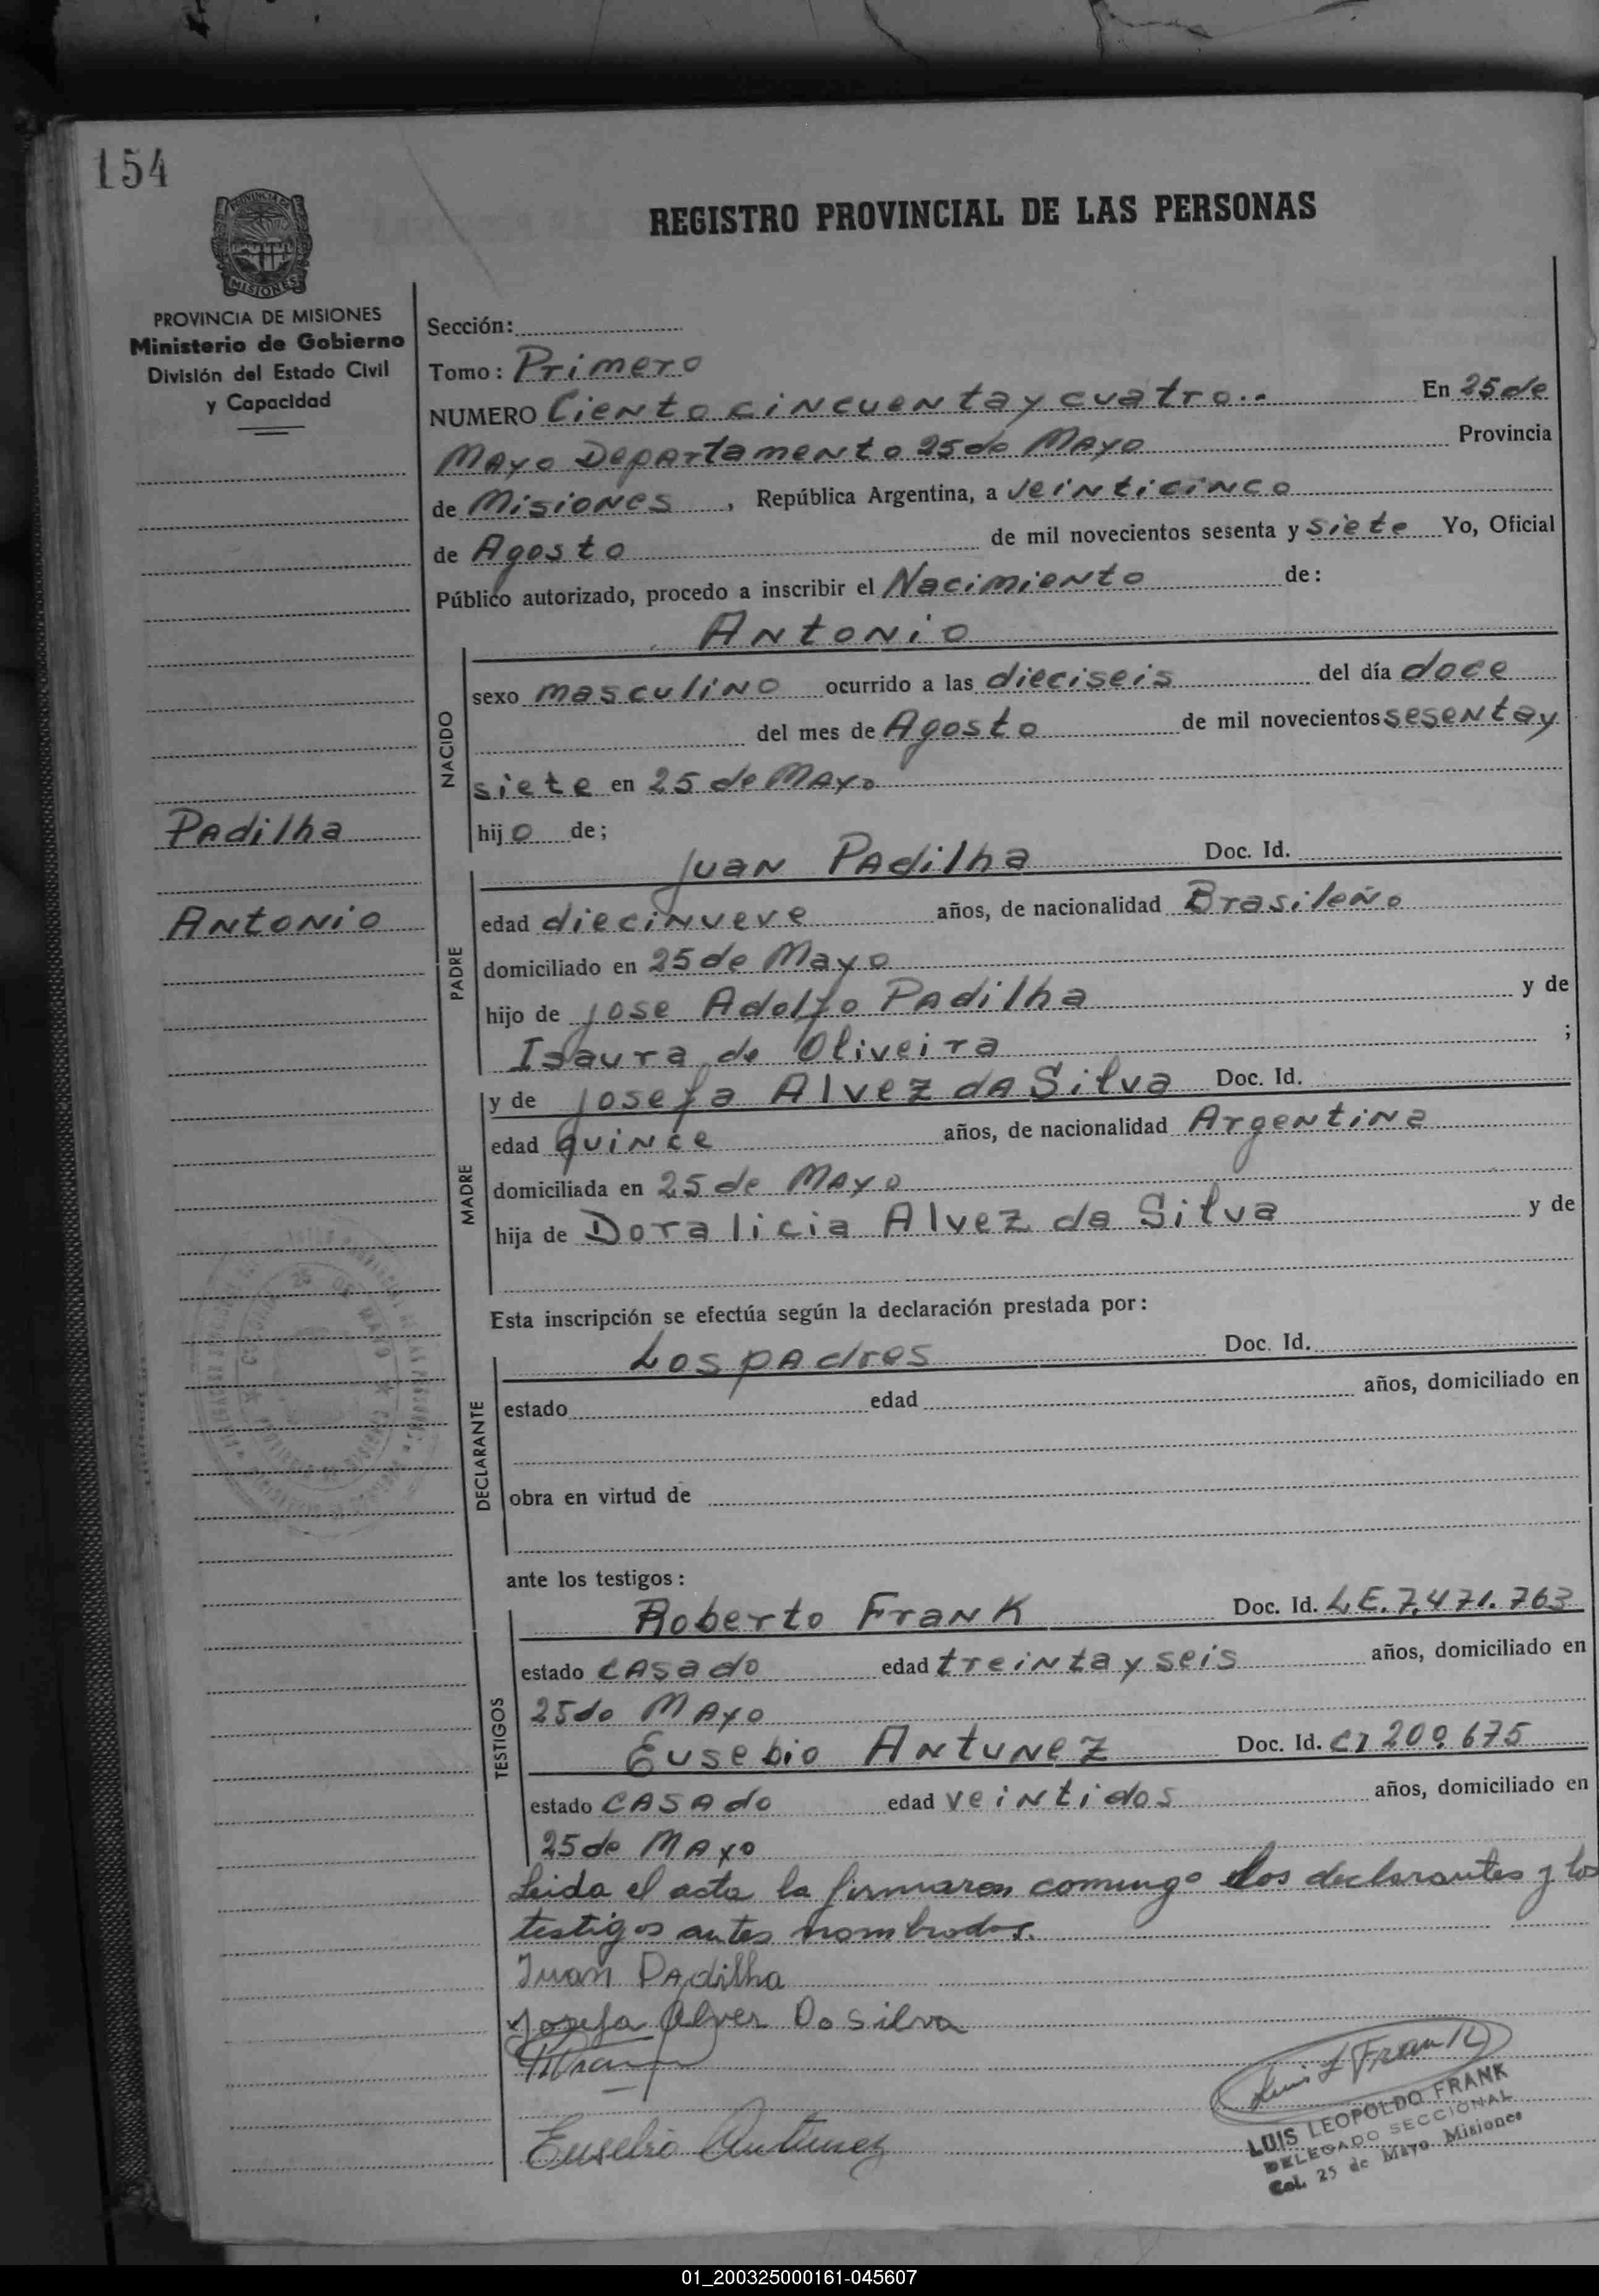 154
REGISTRO PROVINCIAL DE LAS PERSONAS
PROVINCIA DE
MISIONES
PROVINCIA DE MISIONES
Ministerio de Gobierno
División del Estado Civil
y Capacidad
Padilha
Antonio
Sección:
Tomo: Primero
NUMERO Ciento cincuenta y cuatro.. En 25 de
Mayo Departamento 25 de Mayo Provincia
de Misiones, República Argentina, a veinticinco
de Agosto de mil novecientos sesenta y siete Yo, Oficial
Público autorizado, procedo a inscribir el Nacimiento de:
Antonio
NACIDO
sexo masculino ocurrido a las dieciseis del día doce
del mes de Agosto de mil novecientos sesenta y
siete en 25 de Mayo
hijo de;
Juan Padilha Doc. Id.
PADRE
edad diecinueve años, de nacionalidad Brasileño
domiciliado en 25 de Mayo
hijo de Jose Adolfo Padilha y de
Isaura de Oliveira ;
y de Josefa Alvez da Silva Doc. Id.
MADRE
edad quince años, de nacionalidad Argentina
domiciliada en 25 de Mayo
hija de Doralicia Alvez da Silva y de
Esta inscripción se efectúa según la declaración prestada por:
Los padres Doc. Id.
DECLARANTE
estado edad años, domiciliado en
obra en virtud de
ante los testigos:
Roberto Frank Doc. Id. L.E. 7.471.763
TESTIGOS
estado casado edad treinta y seis años, domiciliado en
25 de Mayo
Eusebio Antunez Doc. Id. CI 209.675
estado casado edad veintidos años, domiciliado en
25 de Mayo
Leida el acta la firmaron comingo los declarantes y los
testigos antes nombrados.
Juan Padilha
Josefa Alves Da Silva
Eusebio Antunez
Luis L Frank
LUIS LEOPOLDO FRANK
DELEGADO SECCIONAL
Col. 25 de Mayo Misiones
01_200325000161-045607